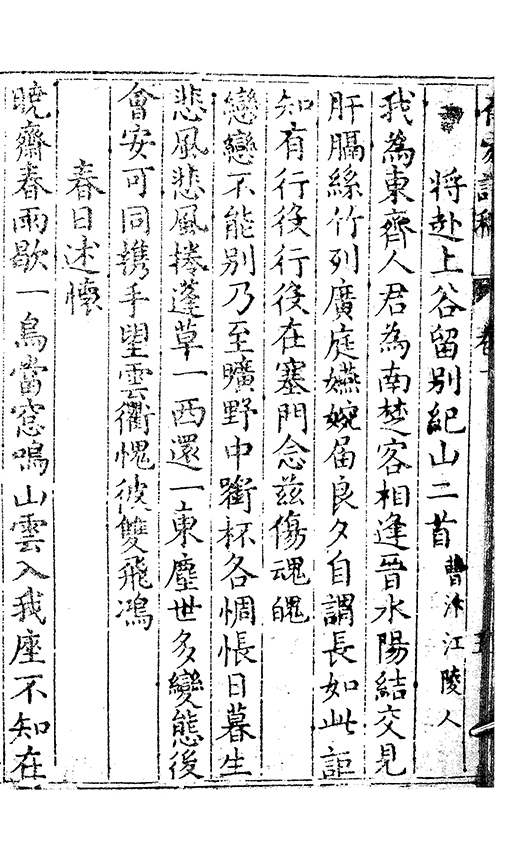 將赴上谷留別紀山二首曹汴江陵人
我為東齊人君為南楚客相逢晉水陽結交見
肝膈絲竹列廣庭嬿婉屆良夕自謂長如此詎
知有行役行役在塞門念茲傷魂魄
戀戀不能別乃至曠野中銜杯各惆悵日暮生
悲風悲風捲蓬草一西還一東塵世多變態後
會安可同攜手望雲衢愧彼雙飛鴻
春日述懷
曉齋春雨歇一鳥當窓鳴山雲入我座不知在